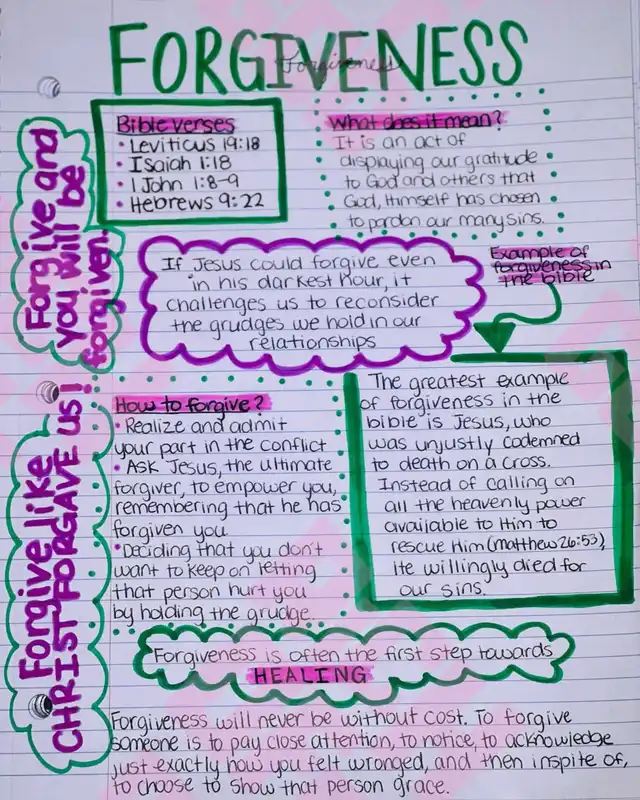 FORGIVENESS
Forgiveness
Bible verses
• Leviticus 19:18
• ISaiah 1:18
• 1 John 1:8-9
• Hebrews 9:22
What does it mean?
It is an act of
displaying our gratitude
to God and others that
God, Himself has chosen
to pardon our many sins.
Forgive and
you will be
forgiven.
If Jesus could forgive even
in his darkest hour, it
challenges us to reconsider
the grudges we hold in our
relationships
Example of
forgiveness in
the bible
The greatest example
of forgiveness in the
bible is Jesus, who
was unjustly codemned
to death on a cross.
Instead of calling on
all the heavenly power
available to Him to
rescue Him (Matthew 26:53),
He willingly died for
our sins.
How to forgive?
• Realize and admit
your part in the conflict
• Ask Jesus, the ultimate
forgiver, to empower you,
remembering that he has
forgiven you
• Deciding that you don't
want to keep on letting
that person hurt you
by holding the grudge.
Forgive like
CHRIST FORGAVE US!
Forgiveness is often the first step towards
HEALING
Forgiveness will never be without cost. To forgive
someone is to pay close attention, to notice, to acknowledge
just exactly how you felt wronged, and then inspite of,
to choose to show that person grace.